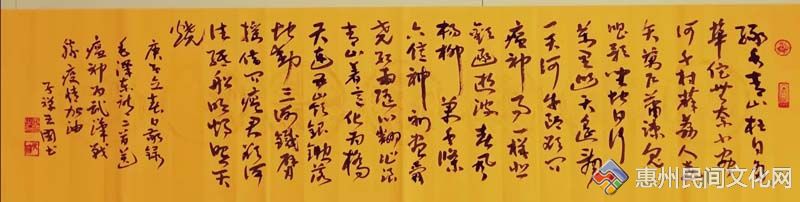 绿水青山枉自多
华佗无奈小虫
何千村薜荔人遗
矢萬户萧疏鬼
唱歌坐地日行八
萬里巡天遥看
一千河牛郎欲问
瘟神事一样悲
欢逐逝波春风
杨柳萬千條
六億神州尽舜
尧红雨随心翻作浪
青山着意化为橋
天连五岭银锄落
地动三河鐵臂
摇借问瘟君欲何
往纸船明烛照天
烧
庚子立春日敬録
毛泽东诗二首送
瘟神为武漢战
胜疫情加油
王国书
惠州民间文化网